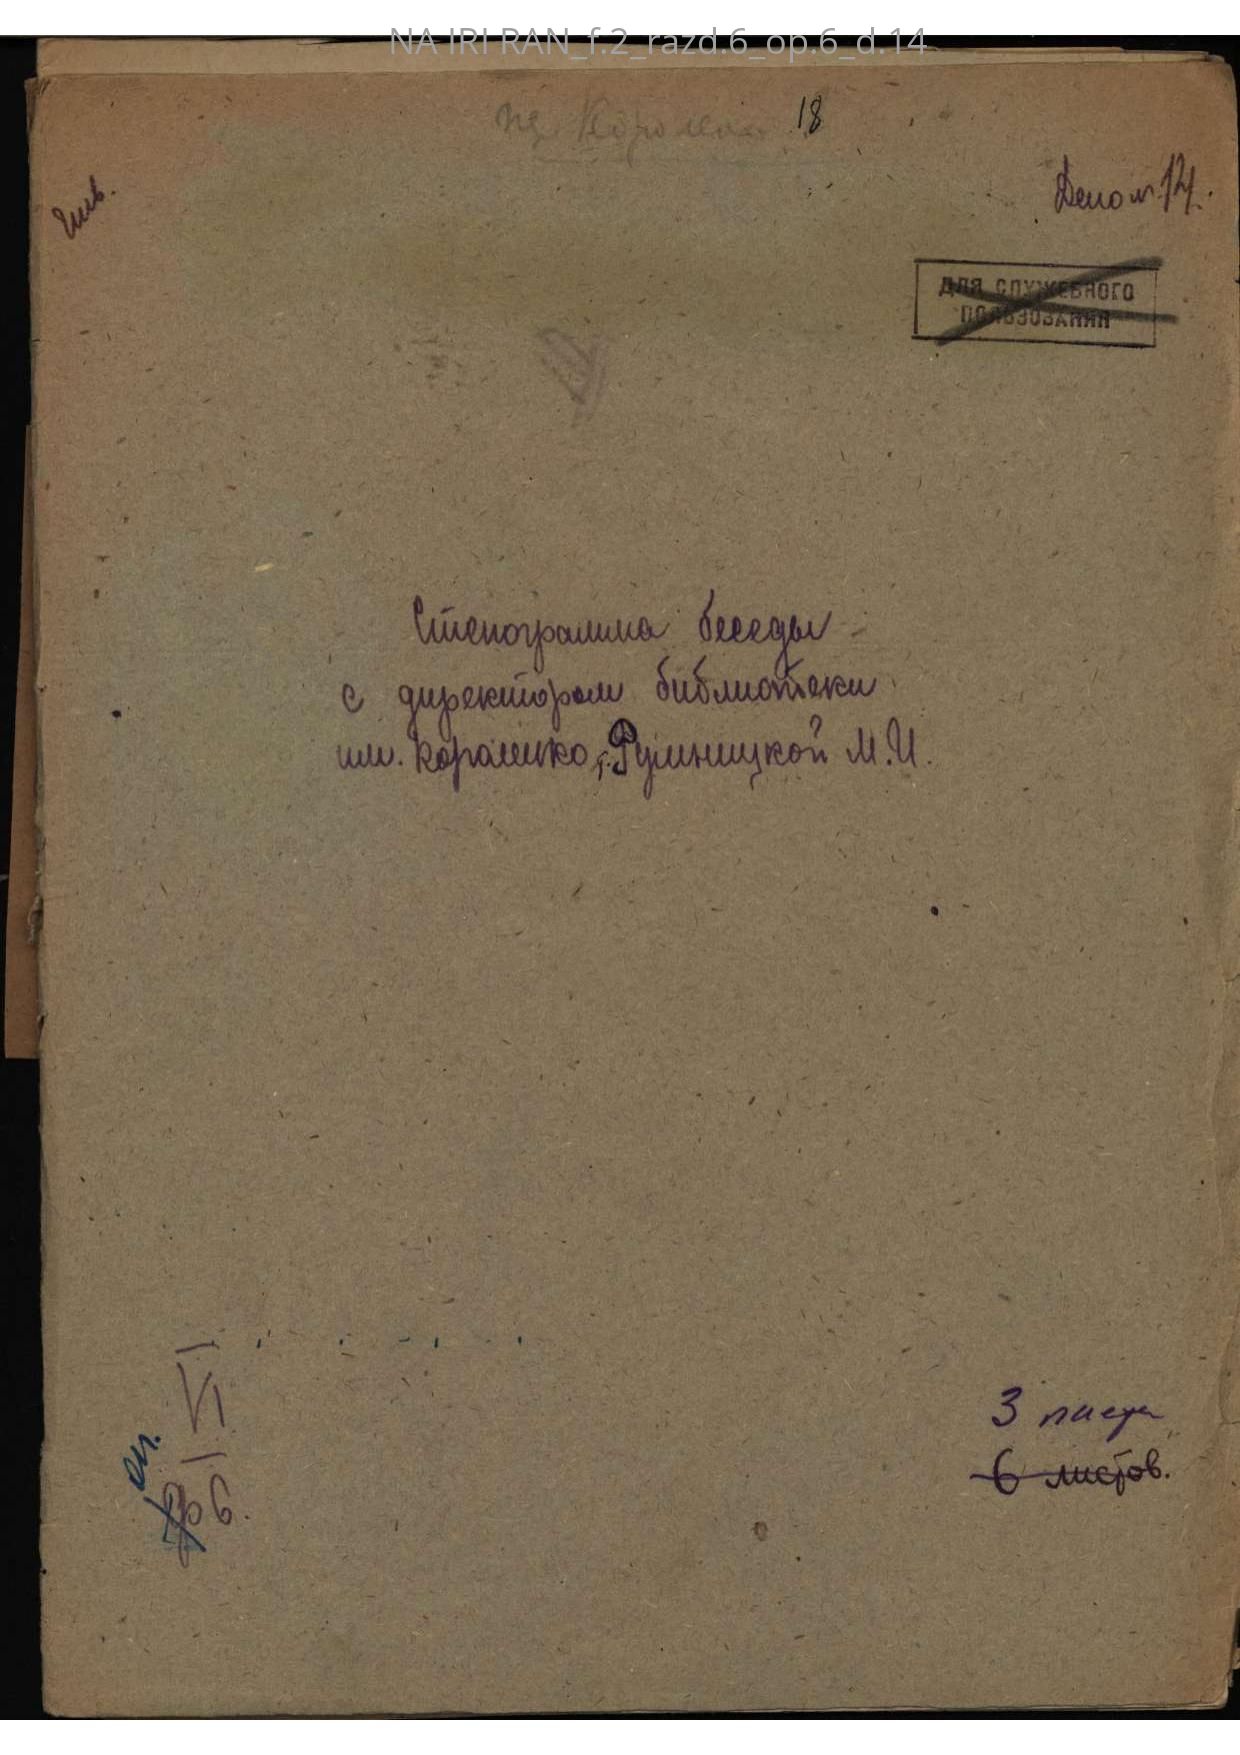 NA IRI RAN_f.2_razd.6_op.6_d.14
18
Инв.
Дело № 14.
ДЛЯ СЛУЖЕБНОГО
ПОЛЬЗОВАНИЯ
Стенограмма беседы
с директором библиотеки
им. Короленко, т. Румницкой М.И.
VI
оп.
6.
3 листа
6 листов.